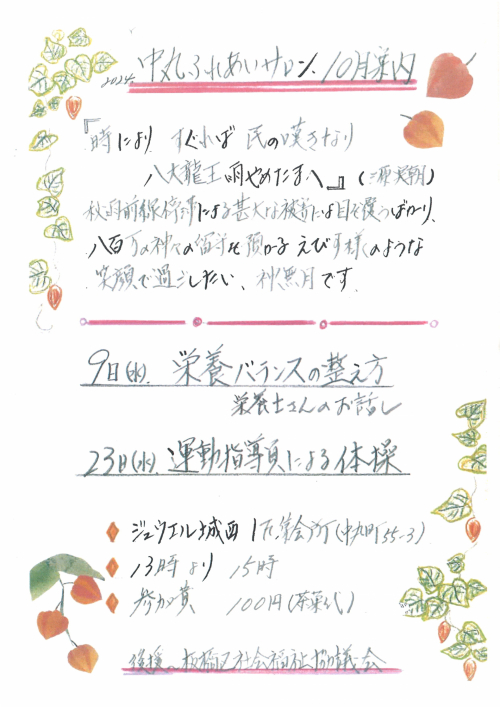 2024. 中丸ふれあいサロン 10月案内
『時により すぐれば 民の嘆きなり
八大龍王 雨やめたまへ』(源実朝)
秋雨前線停滞による甚大な被害には目を覆うばかり、
八百万の神々の留守を預かる えびす様のような
笑顔で過ごしたい、神無月です。
9日(水) 栄養バランスの整え方
栄養士さんのお話し
23日(水) 運動指導員による体操
ジュウエル城西 1F集会所(中丸町55-3)
13時より 15時
参加費 100円(茶菓代)
後援 板橋区社会福祉協議会